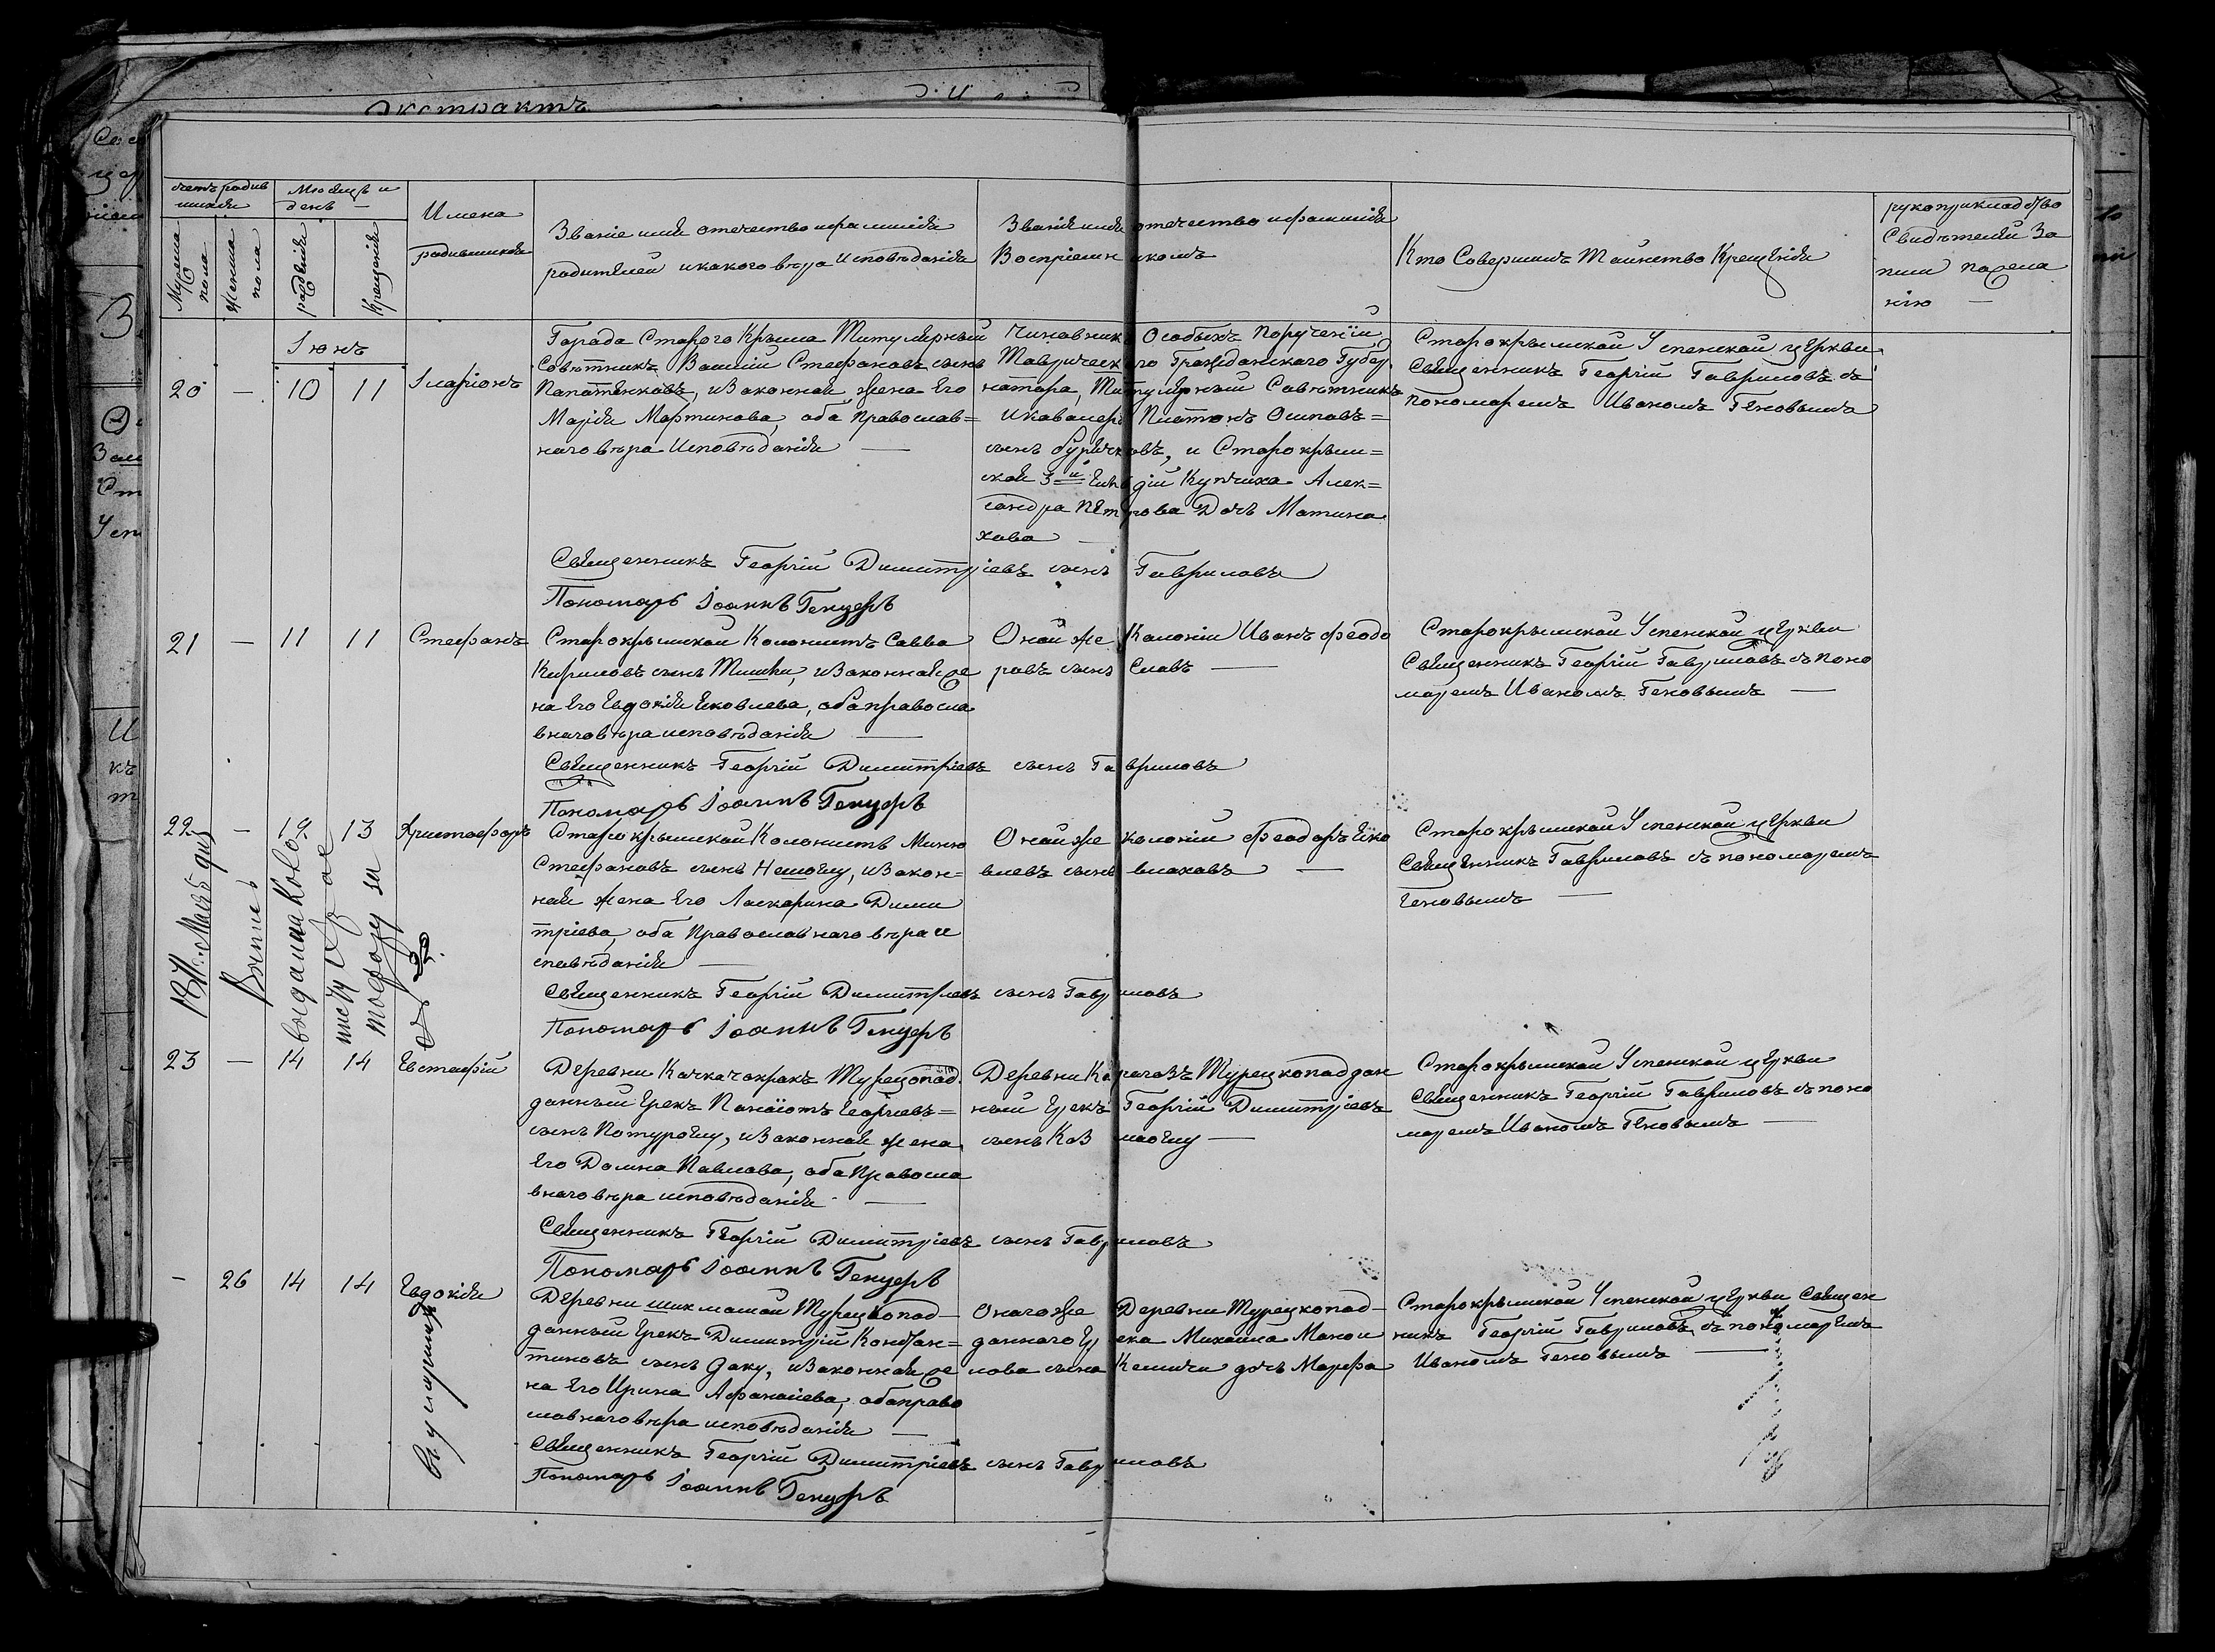 Экстрактъ
счетъ родив
шихся
Мѣсяцъ и
день
Мужеска
пола
Женска
пола
рожденія
Крещенія
Имена
родившихся
Званіе имя отечество и фамилія
родителей и какого вѣроисповѣданія
Званіе имя отечество и фамилія
Воспріемниковъ
Кто Совершилъ Таинство Крещенія
рукоприкладство
Свидѣтелей За
писи пожела
нію —
Іюнь
20 — 10 11
Иларіонъ
Города Старого Крыма Титулярный
Совѣтникъ Василій Стефановъ сынъ
законная Жена Его
Марія Мартинова, оба Православ=
наго вѣра Исповѣданія —
Чиновникъ Особыхъ Порученій
Таврическаго Гражданскаго Губер
натора, Титулярный Совѣтникъ
и Кавалеръ Платонъ Осиповъ=
сынъ и Старокрым=
ской 3й Гилдіи Купчиха Алек=
сандра Петрова Дочъ
хова —
Старокрымской Успенской церкви
Священникъ Георгій Гавриловъ съ
пономаремъ Иваномъ Геновымъ
Священникъ Георгій Димитріевъ сынъ Гавриловъ
Пономарь Іоаннъ Генцеръ
21 — 11 11
Стефанъ
Старокрымской Колонистъ Савва
Кириловъ сынъ законная же
на Его Евдокія Яковлева, оба правосла
внаго вѣра исповѣданія —
Оной же Колоніи Иванъ Феодо
ровъ сынъ Славъ —
Старокрымской Успенской церкви
Священникъ Георгій Гавриловъ съ поно
маремъ Иваномъ Геновымъ —
Священникъ Георгій Димитріевъ сынъ Гавриловъ
Пономарь Іоаннъ Генцеръ
22 — 12 13
Христофоръ
Старокрымской Колонистъ
Стефановъ сынъ и Закон=
ная Жена Его Ласкарина Дими
тріева, оба Православнаго вѣра и
сповѣданія —
Оной же Колоніи Феодоръ Яко
влевъ сынъ Влаховъ —
Старокрымской Успенской церкви
Священникъ Гавриловъ съ пономаремъ
Геновымъ —
Священникъ Георгій Димитріевъ сынъ Гавриловъ
Пономарь Іоаннъ Генцеръ
23 — 14 14
Евстафій
Деревни Турецкопод
данный Грекъ Панаіотъ Георгіевъ=
сынъ законная жена
Его Домна Павлова, оба Правосла
внаго вѣра исповѣданія —
Деревни Карагозъ Турецкоподдан
ный Грекъ Георгій Димитріевъ
сынъ —
Старокрымской Успенской церкви
Священникъ Георгій Гавриловъ съ поно
маремъ Иваномъ Геновымъ —
Священникъ Георгій Димитріевъ сынъ Гавриловъ
Пономарь Іоаннъ Генцеръ
— 26 14 14
Евдокія
Деревни Турецкопод—
данный Грекъ Димитрій Констан=
тиновъ сынъ Даку, и законная же
на Его Ирина Афанасіева, оба право
славнаго вѣра исповѣданія —
Оной же Деревни Турецкопод—
даннаго Грека Михаила
лова сына дочъ Марфа
Старокрымской Успенской церкви Священ
никъ Георгій Гавриловъ съ пономаремъ
Иваномъ Геновымъ —
Священникъ Георгій Димитріевъ сынъ Гавриловъ
Пономарь Іоаннъ Генцеръ